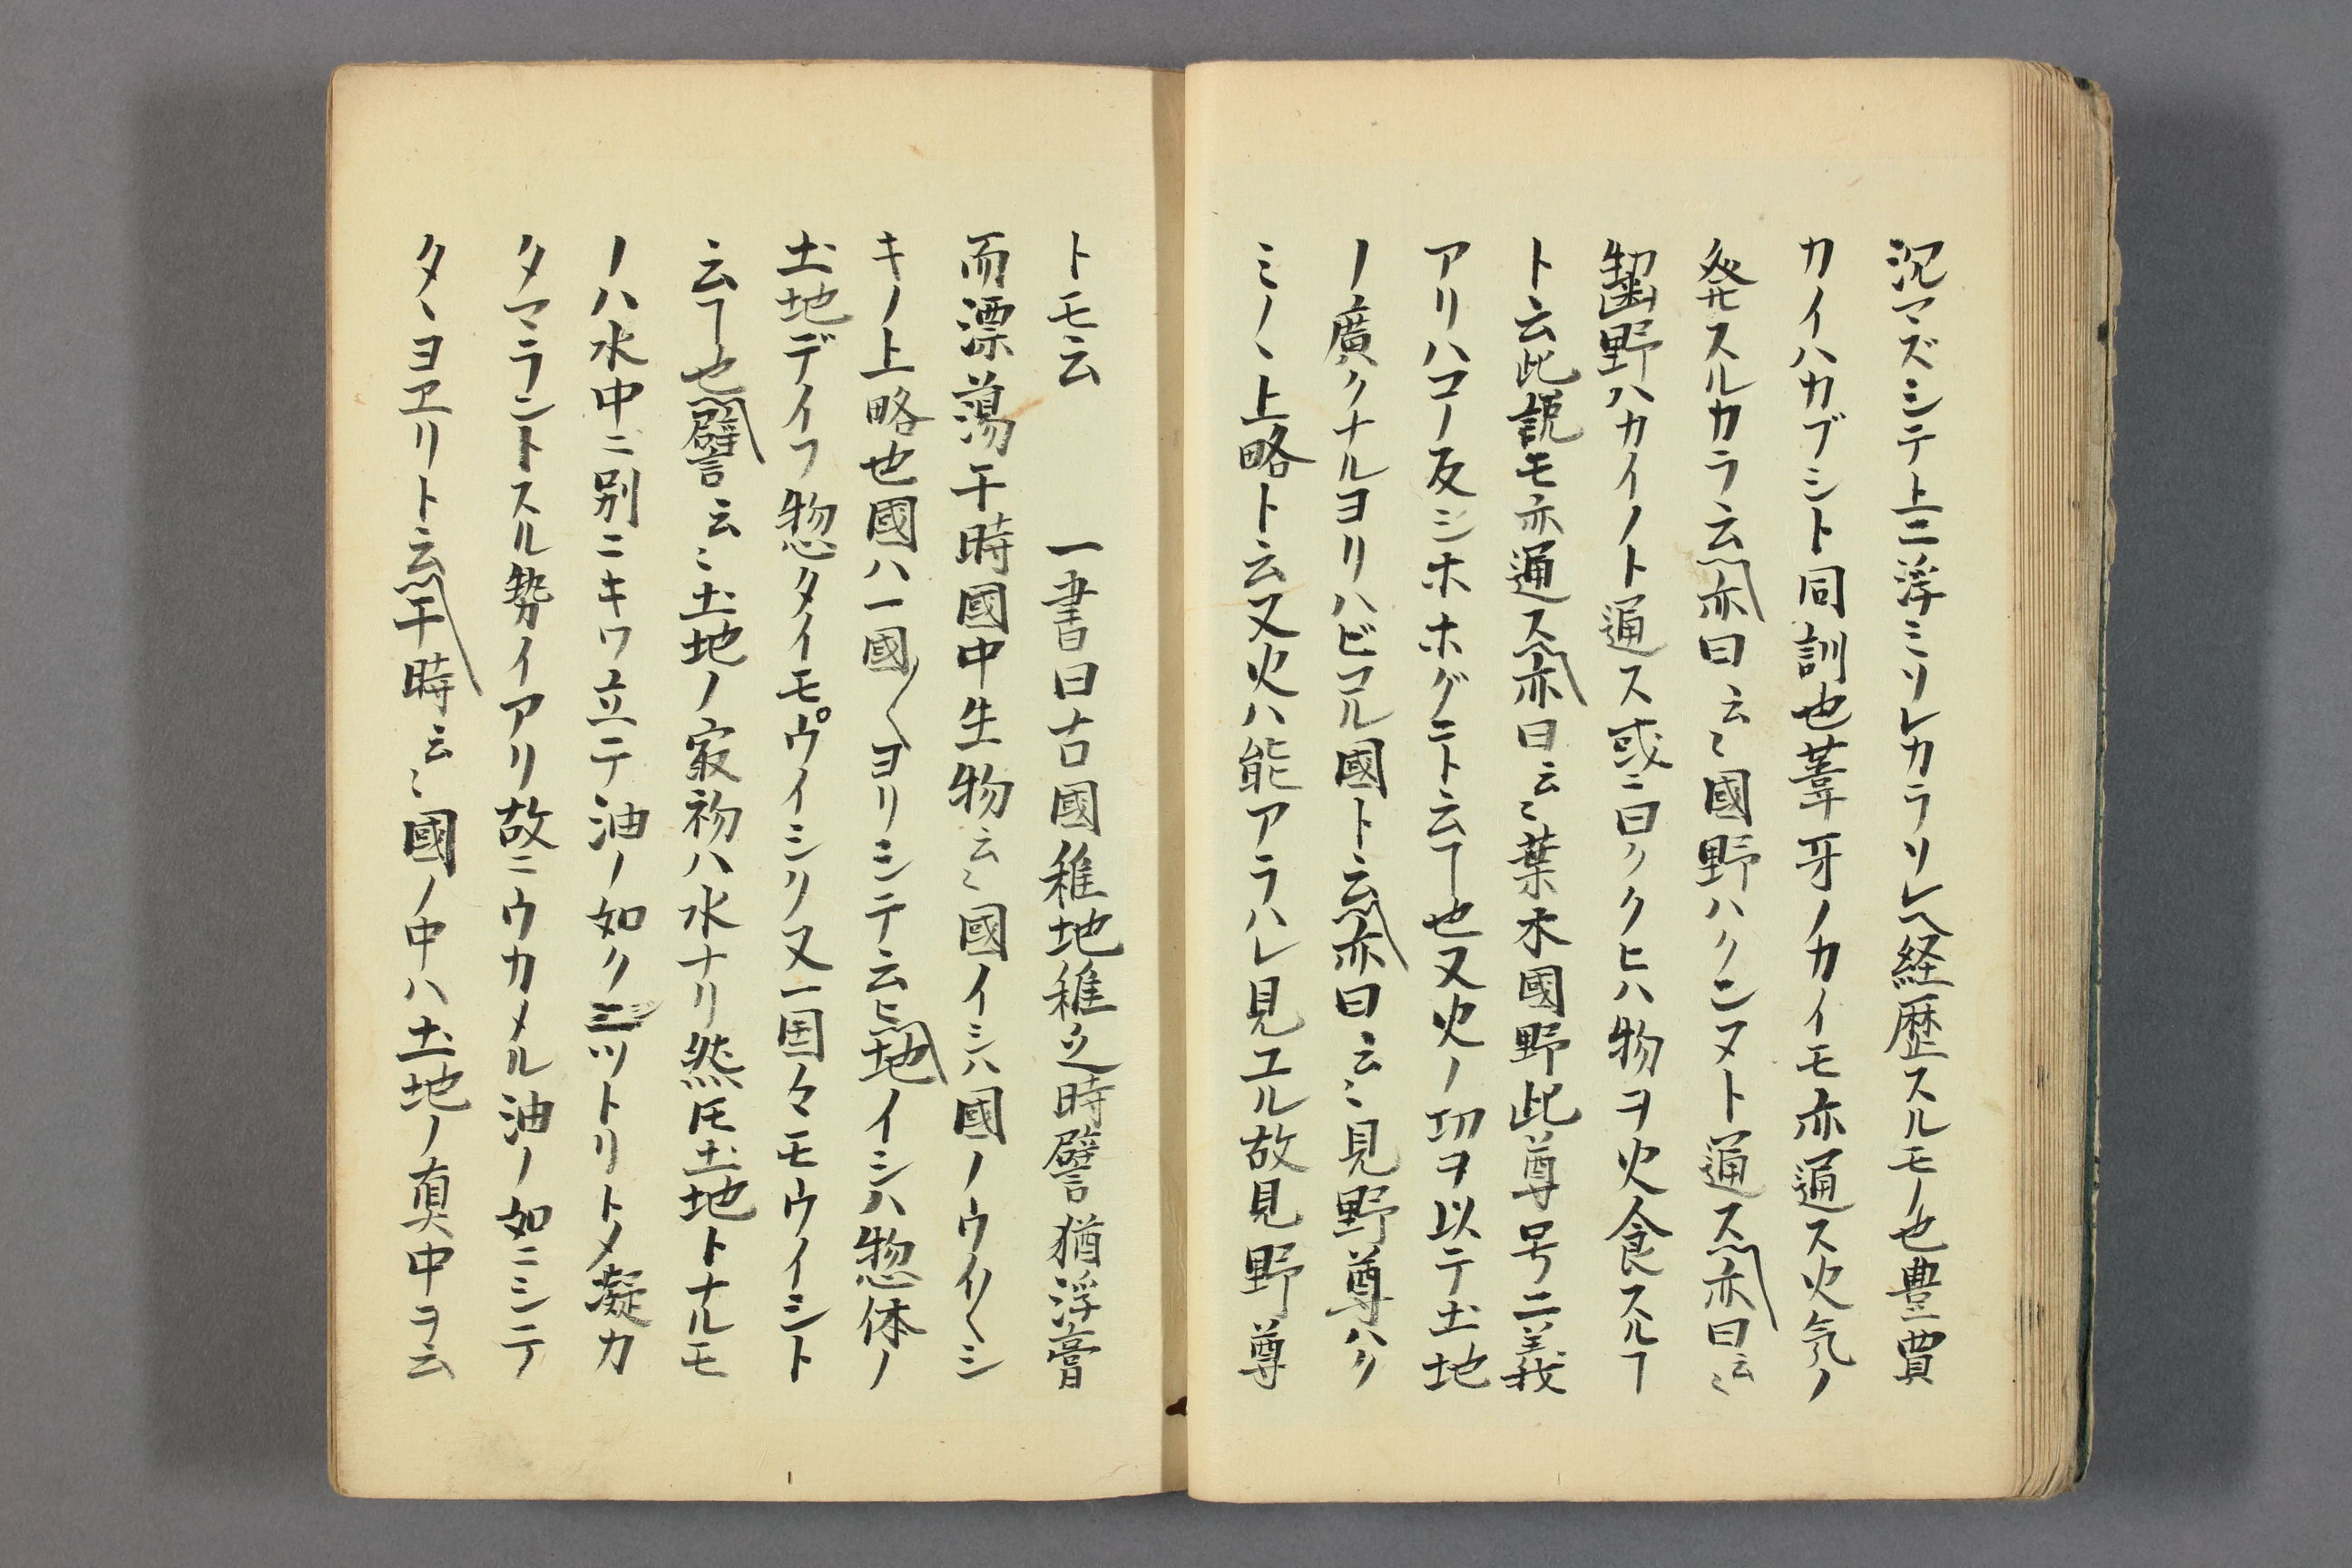 沉マズシテ上ニ浮ミソレカラソレヘ経歴スルモノ也豊買
カイハカブシト同訓也葦牙ノカイモ亦通ス火気ノ
発スルカラ云亦曰云〻國野ハクンヌト通ス亦曰云〻
齧野ハカイノト通ス或ニ曰ククヒハ物ヲ火食スルヿ
ト云此説モ亦通ス亦曰云〻葉木國野此尊号二義
アリハコノ反シホホグニト云ヿ也又火ノ切ヲ以テ土地
ノ廣クナルヨリハビコル國ト云亦曰云〻見野尊ハク
ミノヽ上略ト云又火ハ能アラハレ見ユル故見野尊
トモ云
一書曰古國稚地稚之時譬猶浮膏
而漂蕩于時國中生物云〻國イシハ國ノウイ〱シ
キノ上略也國ハ一國〱ヨリシテ云ヒ地イシハ惣体ノ
土地デイフ惣タイモウイシリ又一国々モウイシト
云ヿ也譬云〻土地ノ㝡初ハ水ナリ然𪜈土地トナルモ
ノハ水中ニ別ニキワ立テ油ノ如クツトリトメ凝カ
タマラントスル勢イアリ故ニウカメル油ノ如ニシテ
タヽヨエリト云于時云〻國ノ中ハ土地ノ真中ヲ云